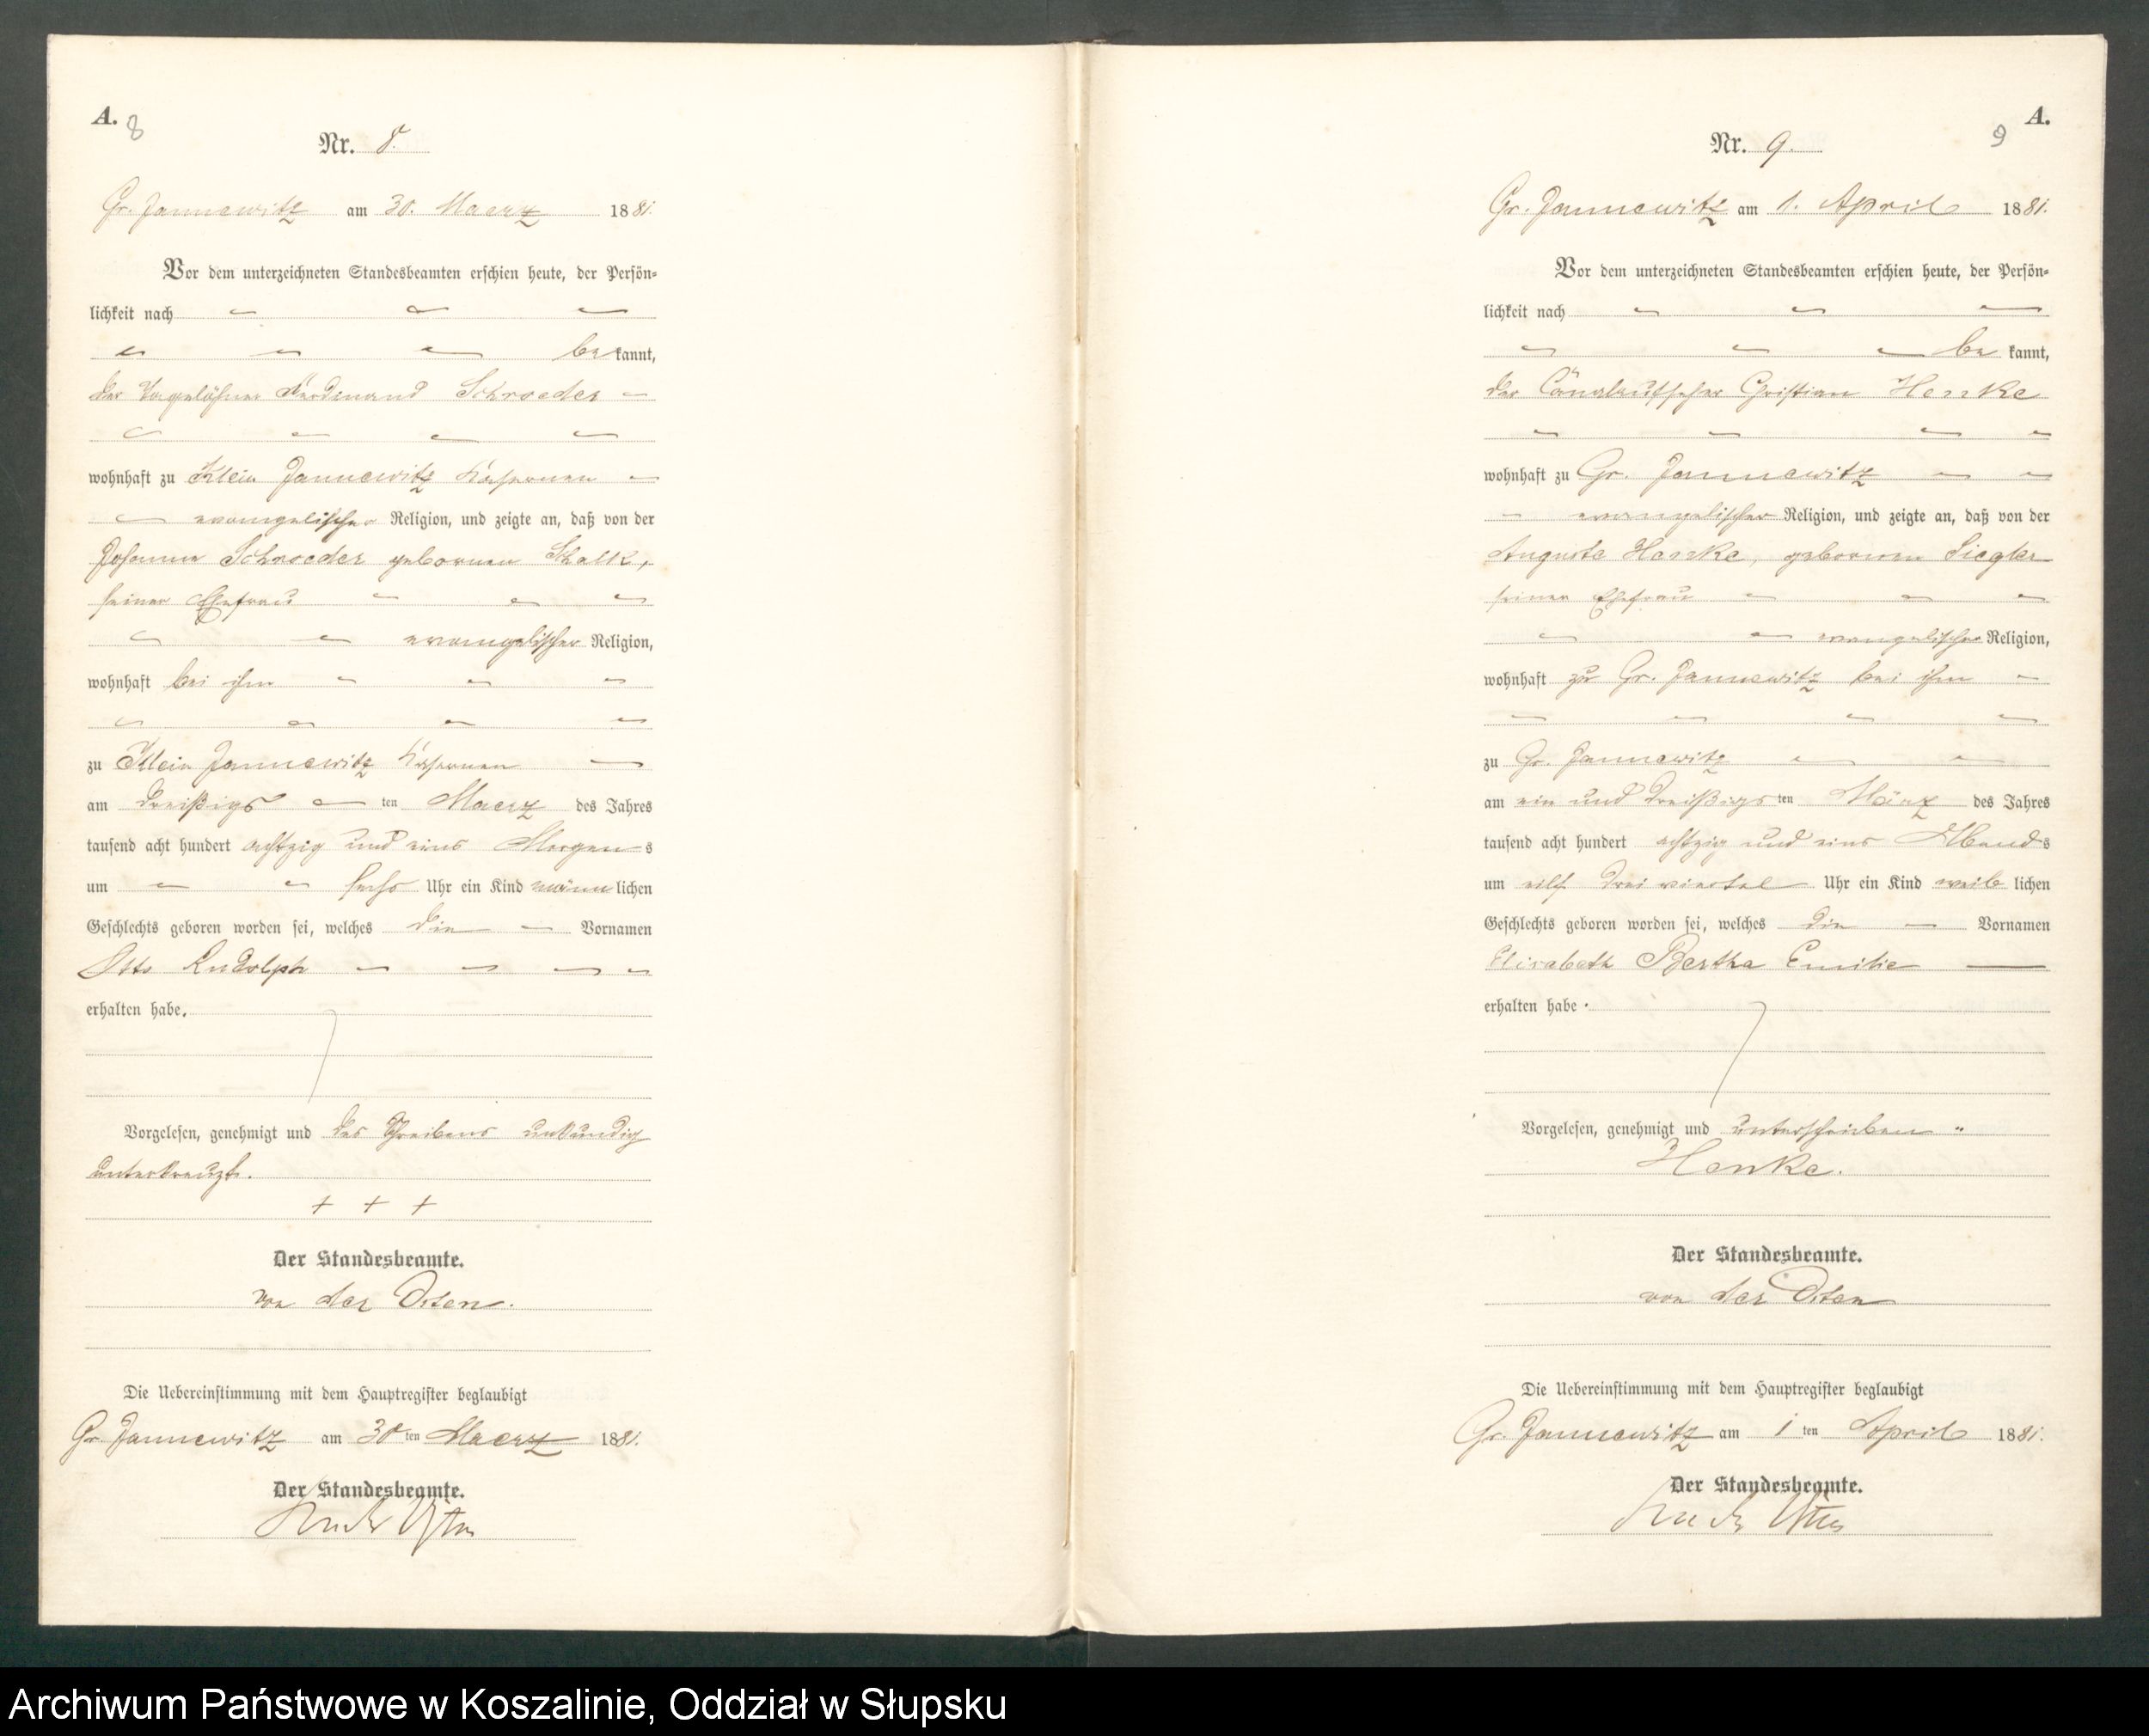 A.
8
Nr. 8.
Gr. Jannewitz am 30. Maerz 1881.
Vor dem unterzeichneten Standesbeamten erschien heute, der Persön=
lichkeit nach
be kannt,
der Tagelöhner Ferdinand Schroeder
wohnhaft zu Klein Jannewitz Kasernen
evangelischer Religion, und zeigte an, daß von der
Johanne Schroeder gebornen Schalk,
seiner Ehefrau
evangelischer Religion,
wohnhaft bei ihm
zu Klein Jannewitz Kasernen
am dreißigs ten Maerz des Jahres
tausend acht hundert achtzig und eins Morgen s
um sechs Uhr ein Kind männ lichen
Geschlechts geboren worden sei, welches die Vornamen
Otto Rudolph
erhalten habe.
Vorgelesen, genehmigt und des Schreibens unkundig
unterkreuzt.
+ + +
Der Standesbeamte.
von der Osten.
Die Uebereinstimmung mit dem Hauptregister beglaubigt
Gr. Jannewitz am 30 ten Maerz 1881.
Der Standesbeamte.
A.
9
Nr. 9.
Gr. Jannewitz am 1. April 1881.
Vor dem unterzeichneten Standesbeamten erschien heute, der Persön=
lichkeit nach
be kannt,
der Christian Henke
wohnhaft zu Gr. Jannewitz
evangelischer Religion, und zeigte an, daß von der
Auguste Henke, gebornen Siegler
seiner Ehefrau
evangelischer Religion,
wohnhaft zu Gr. Jannewitz bei ihm
zu Gr. Jannewitz
am ein und dreißigs ten März des Jahres
tausend acht hundert achtzig und eins Abend s
um eilf drei viertel Uhr ein Kind weib lichen
Geschlechts geboren worden sei, welches die Vornamen
Elisabeth Bertha Emilie
erhalten habe.
Vorgelesen, genehmigt und unterschrieben
Henke.
Der Standesbeamte.
von der Osten
Die Uebereinstimmung mit dem Hauptregister beglaubigt
Gr. Jannewitz am 1 ten April 1881.
Der Standesbeamte.
Archiwum Państwowe w Koszalinie, Oddział w Słupsku